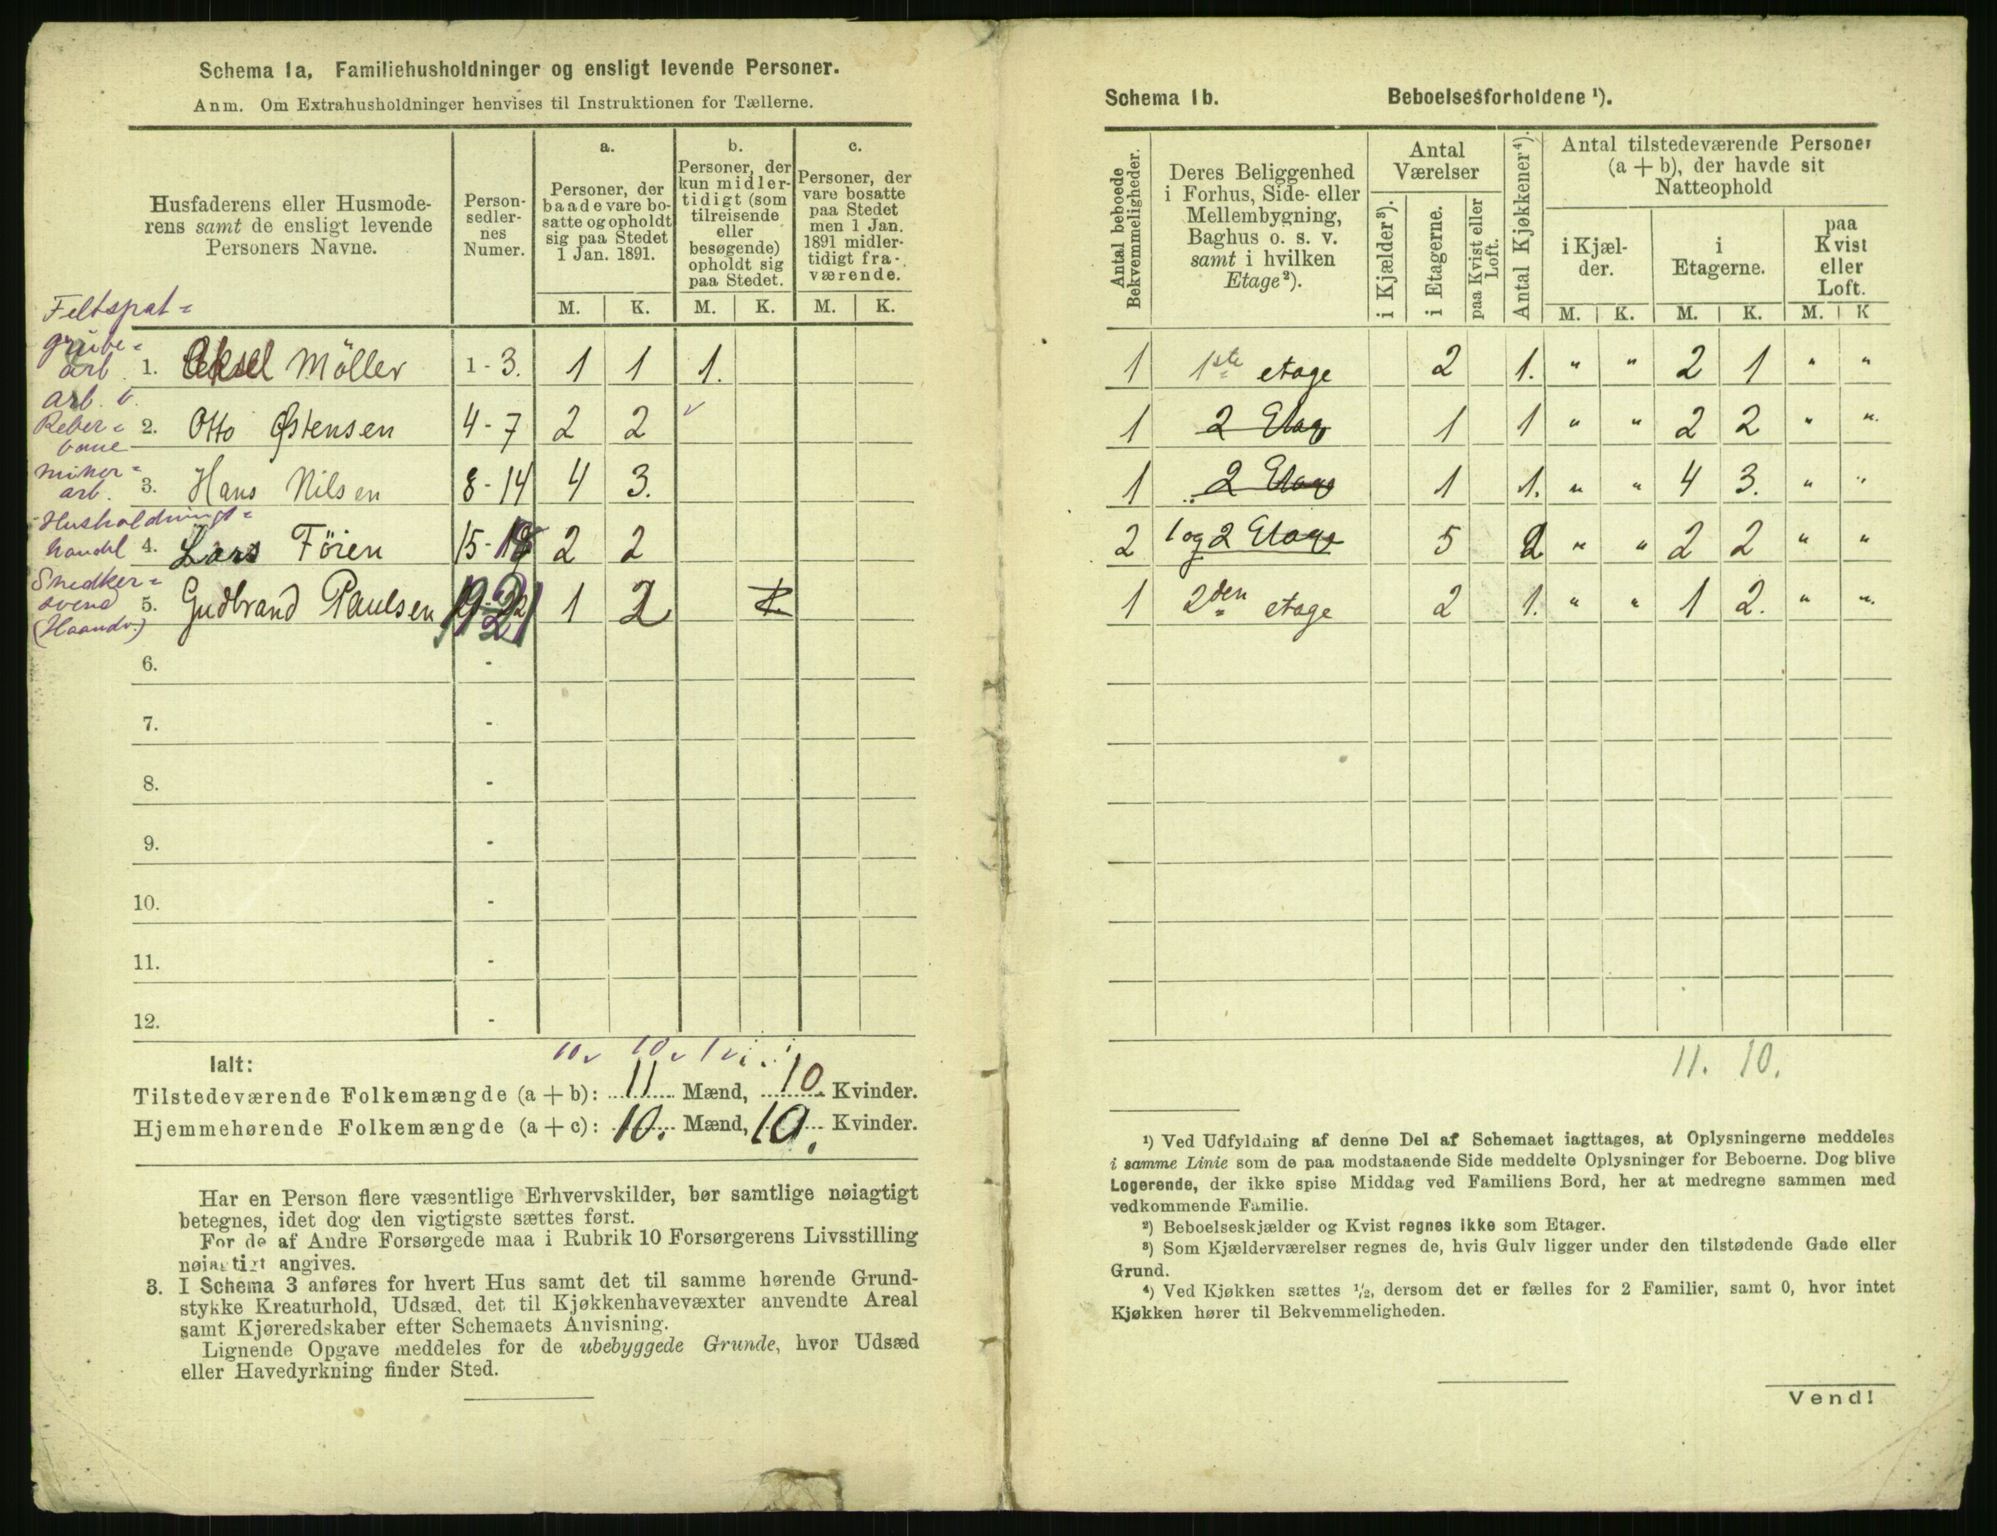 Schema 1a, Familiehusholdninger og ensligt levende Personer.
Anm. Om Extrahusholdninger henvises til Instruktionen for Tællerne.
Husfaderens eller Husmode-
rens samt de ensligt levende
Personers Navne.
Person-
sedler-
nes
Numer.
a.
Personer, der
baade vare bo-
satte og opholdt
sig paa Stedet
1 Jan. 1891.
b.
Personer, der
kun midler-
tidigt (som
tilreisende
eller
besøgende)
opholdt sig
paa Stedet.
c.
Personer, der
vare bosatte
paa Stedet
men 1 Jan.
1891 midler-
tidigt fra-
værende.
M. K. M. K. M. K.
Feltspat=
grube=
arb
1. Aksel Möller 1-3. 1 1 1.
arb. v.
Reber=
bane
2. Otto Østensen 4-7 2 2
miner=
arb.
3. Hans Nilsen 8-14 4 3.
Husholdnings=
handel
4. Lars Föien 15-18 2 2
Snedker=
svend
(Haandv.)
5. Gudbrand Paulsen 19-21 1 2
6. -
7. -
8. -
9. -
10. -
11. -
12. -
Ialt:
10 10 1
Tilstedeværende Folkemængde (a + b): 11 Mænd, 10. Kvinder.
Hjemmehørende Folkemængde (a + c): 10. Mænd, 10. Kvinder.
Har en Person flere væsentlige Erhvervskilder, bør samtlige nøiagtigt
betegnes, idet dog den vigtigste sættes først.
For de af Andre Forsørgede maa i Rubrik 10 Forsørgerens Livsstilling
nøiagtigt angives.
3. I Schema 3 anføres for hvert Hus samt det til samme hørende Grund-
stykke Kreaturhold, Udsæd, det til Kjøkkenhavevæxter anvendte Areal
samt Kjøreredskaber efter Schemaets Anvisning.
Lignende Opgave meddeles for de ubebyggede Grunde, hvor Udsæd
eller Havedyrkning finder Sted.
Schema 1b. Beboelsesforholdene ¹).
Antal beboede
Bekvemmeligheder.
Deres Beliggenhed
i Forhus, Side- eller
Mellembygning,
Baghus o. s. v.
samt i hvilken
Etage²).
Antal
Værelser
i Kjælder³).
i Etagerne.
paa Kvist eller
Loft.
Antal Kjøkkener⁴).
Antal tilstedeværende Personer
(a + b), der havde sit
Natteophold
i Kjæl-
der.
i
Etagerne.
paa
Kvist
eller
Loft.
M. K. M. K. M. K
1 1ste etage 2 1. " " 2 1 " "
1 2 Etage 1 1 " " 2 2 " "
1 2 Etage 1 1. " " 4 3. " "
2 1 og 2 Etage 5 2 " " 2 2 " "
1 2den etage 2 1. " " 1 2. " "
11. 10.
¹) Ved Udfyldning af denne Del af Schemaet iagttages, at Oplysningerne meddeles
i samme Linie som de paa modstaaende Side meddelte Oplysninger for Beboerne. Dog blive
Logerende, der ikke spise Middag ved Familiens Bord, her at medregne sammen med
vedkommende Familie.
²) Beboelseskjælder og Kvist regnes ikke som Etager.
³) Som Kjælderværelser regnes de, hvis Gulv ligger under den tilstødende Gade eller
Grund.
⁴) Ved Kjøkken sættes ½, dersom det er fælles for 2 Familier, samt 0, hvor intet
Kjøkken hører til Bekvemmeligheden.
Vend!